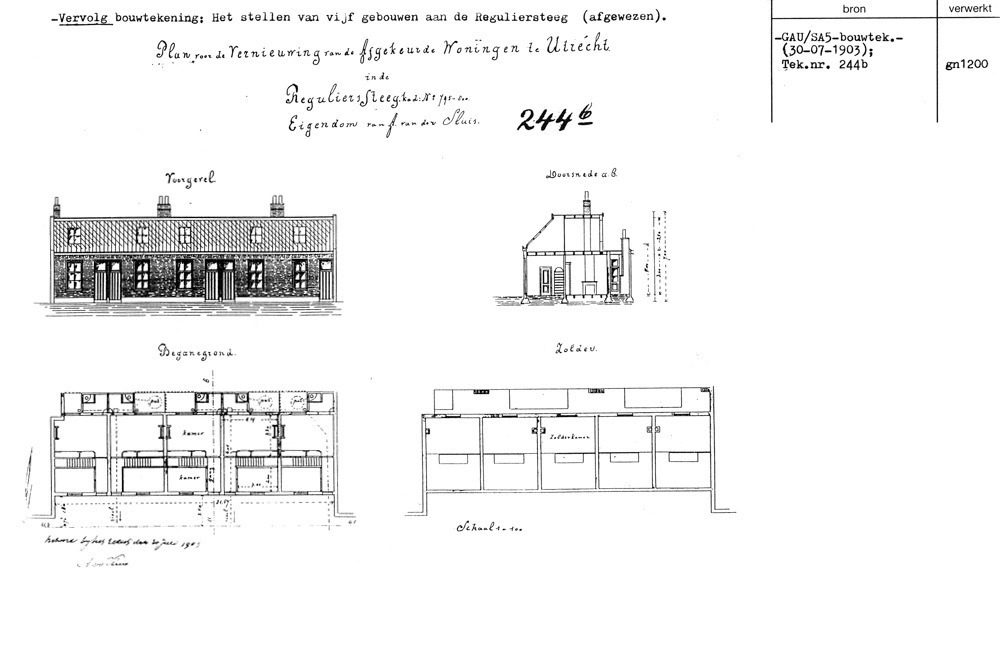 -Vervolg bouwtekening; Het stellen van vijf gebouwen aan de Reguliersteeg (afgewezen).
bron
verwerkt
-GAU/SA5-bouwtek.-
(30-07-1903);
Tek.nr. 244b
gn1200
Plan voor de Vernieuwing van de Afgekeurde Woningen te Utrécht
in de
Reguliers Steeg kad: No 795-800
Eigendom van A. van der Sluis.
244 b
Voorgevel.
Doorsnede a.B.
Beganegrond.
Zolder.
kamer
kamer
Zolderkamer
put
put
put
Schaal 1-100